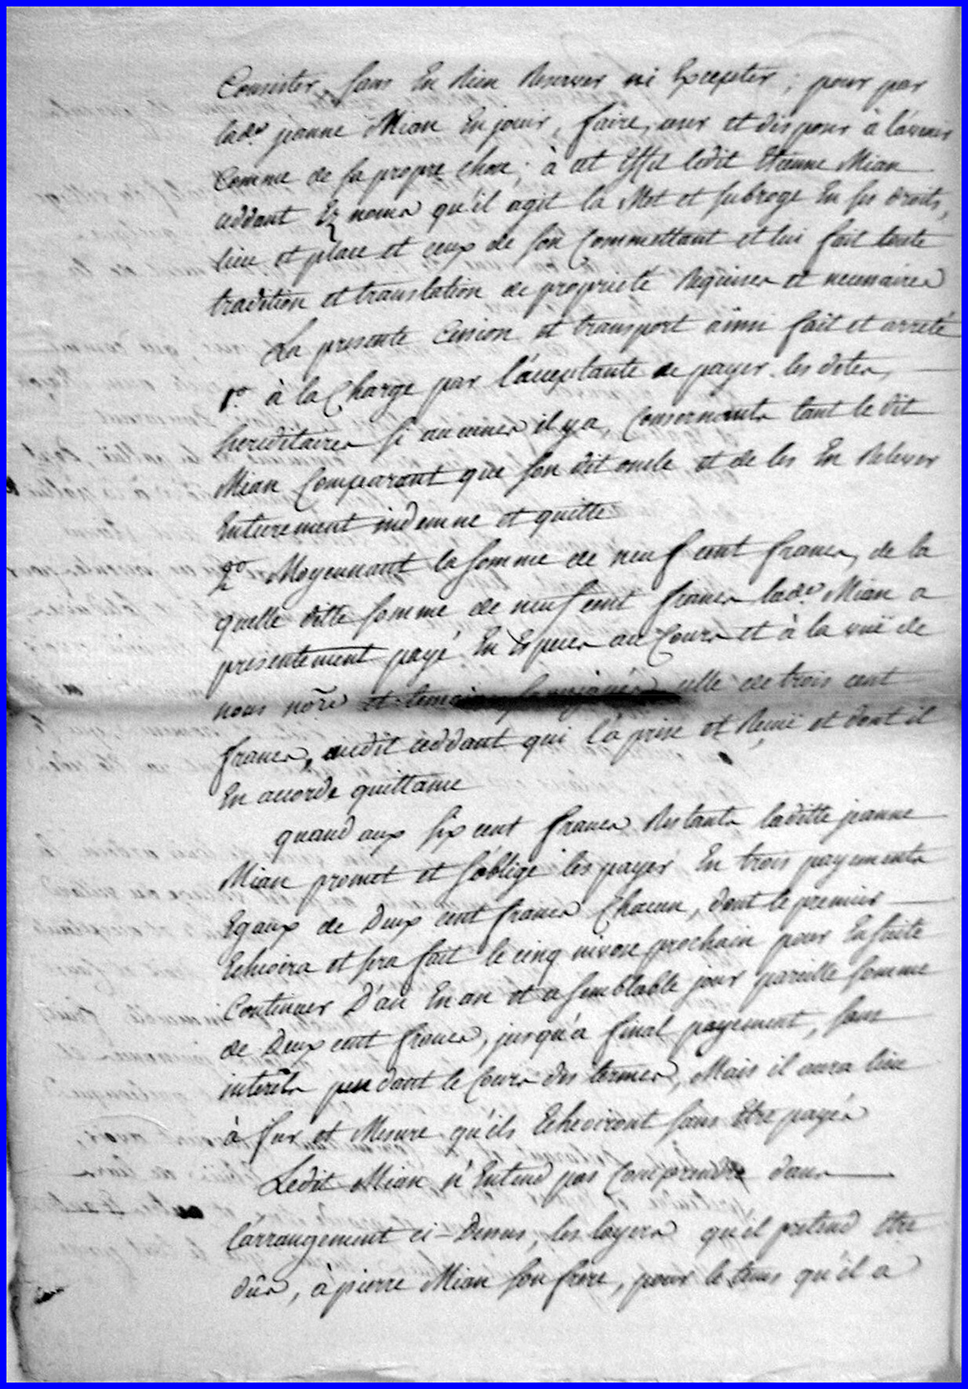 Consister, sans En Rien Reserver ni Excepter ; pour par
lade. jeanne Mian En jouir, faire, user et disposer à l'avenir
Comme de sa propre chose ; à cet Effet ledit Etienne Mian
ceddant Ez noms qu'il agit la Met et subroge En ses droits,
lieu et place et ceux de son Commettant et lui fait toute
tradition et translation de proprieté Requises et necessaires
La presente Cession et transport ainsi fait et arreté
1°. à la Charge par l'acceptante de payer les dettes,
hereditaires si aucunes il y a, Concernants tant le dit
Mian Comparant que son dit oncle et de les En Relever
Entierement indemne et quitte
2° Moyennant la somme de neuf cent francs, de la
quelle ditte somme de neuf cent francs lade. Mian a
presentement payé En Especes au Cours et à la vuë de
nous nore et temoins soussignés celle de trois cent
francs, audit ceddant qui l'a prise et Reçue et dont il
En accorde quittance
quand aux six cent francs Restants laditte jeanne
Mian promet et s'oblige les payer En trois payements
Egaux de Deux cent francs Chacun, dont le premier
Echeoira et sera fait le cinq nivose prochain pour Ensuite
Continuer D'an En an et a semblable jour pareille somme
de Deux cent francs, jusqu'a final payement, sans
interêts pendant le Cours des termes, Mais il aura lieu
à fur et Mesure qu'ils Echeoiront sans Etre payés
Ledit Mian n'Entend pas Comprendre dans
l'arrangement ci-Dessus, les loyers qu'il pretend Etre
dûs, à pierre Mian son frere, pour le tems qu'il a